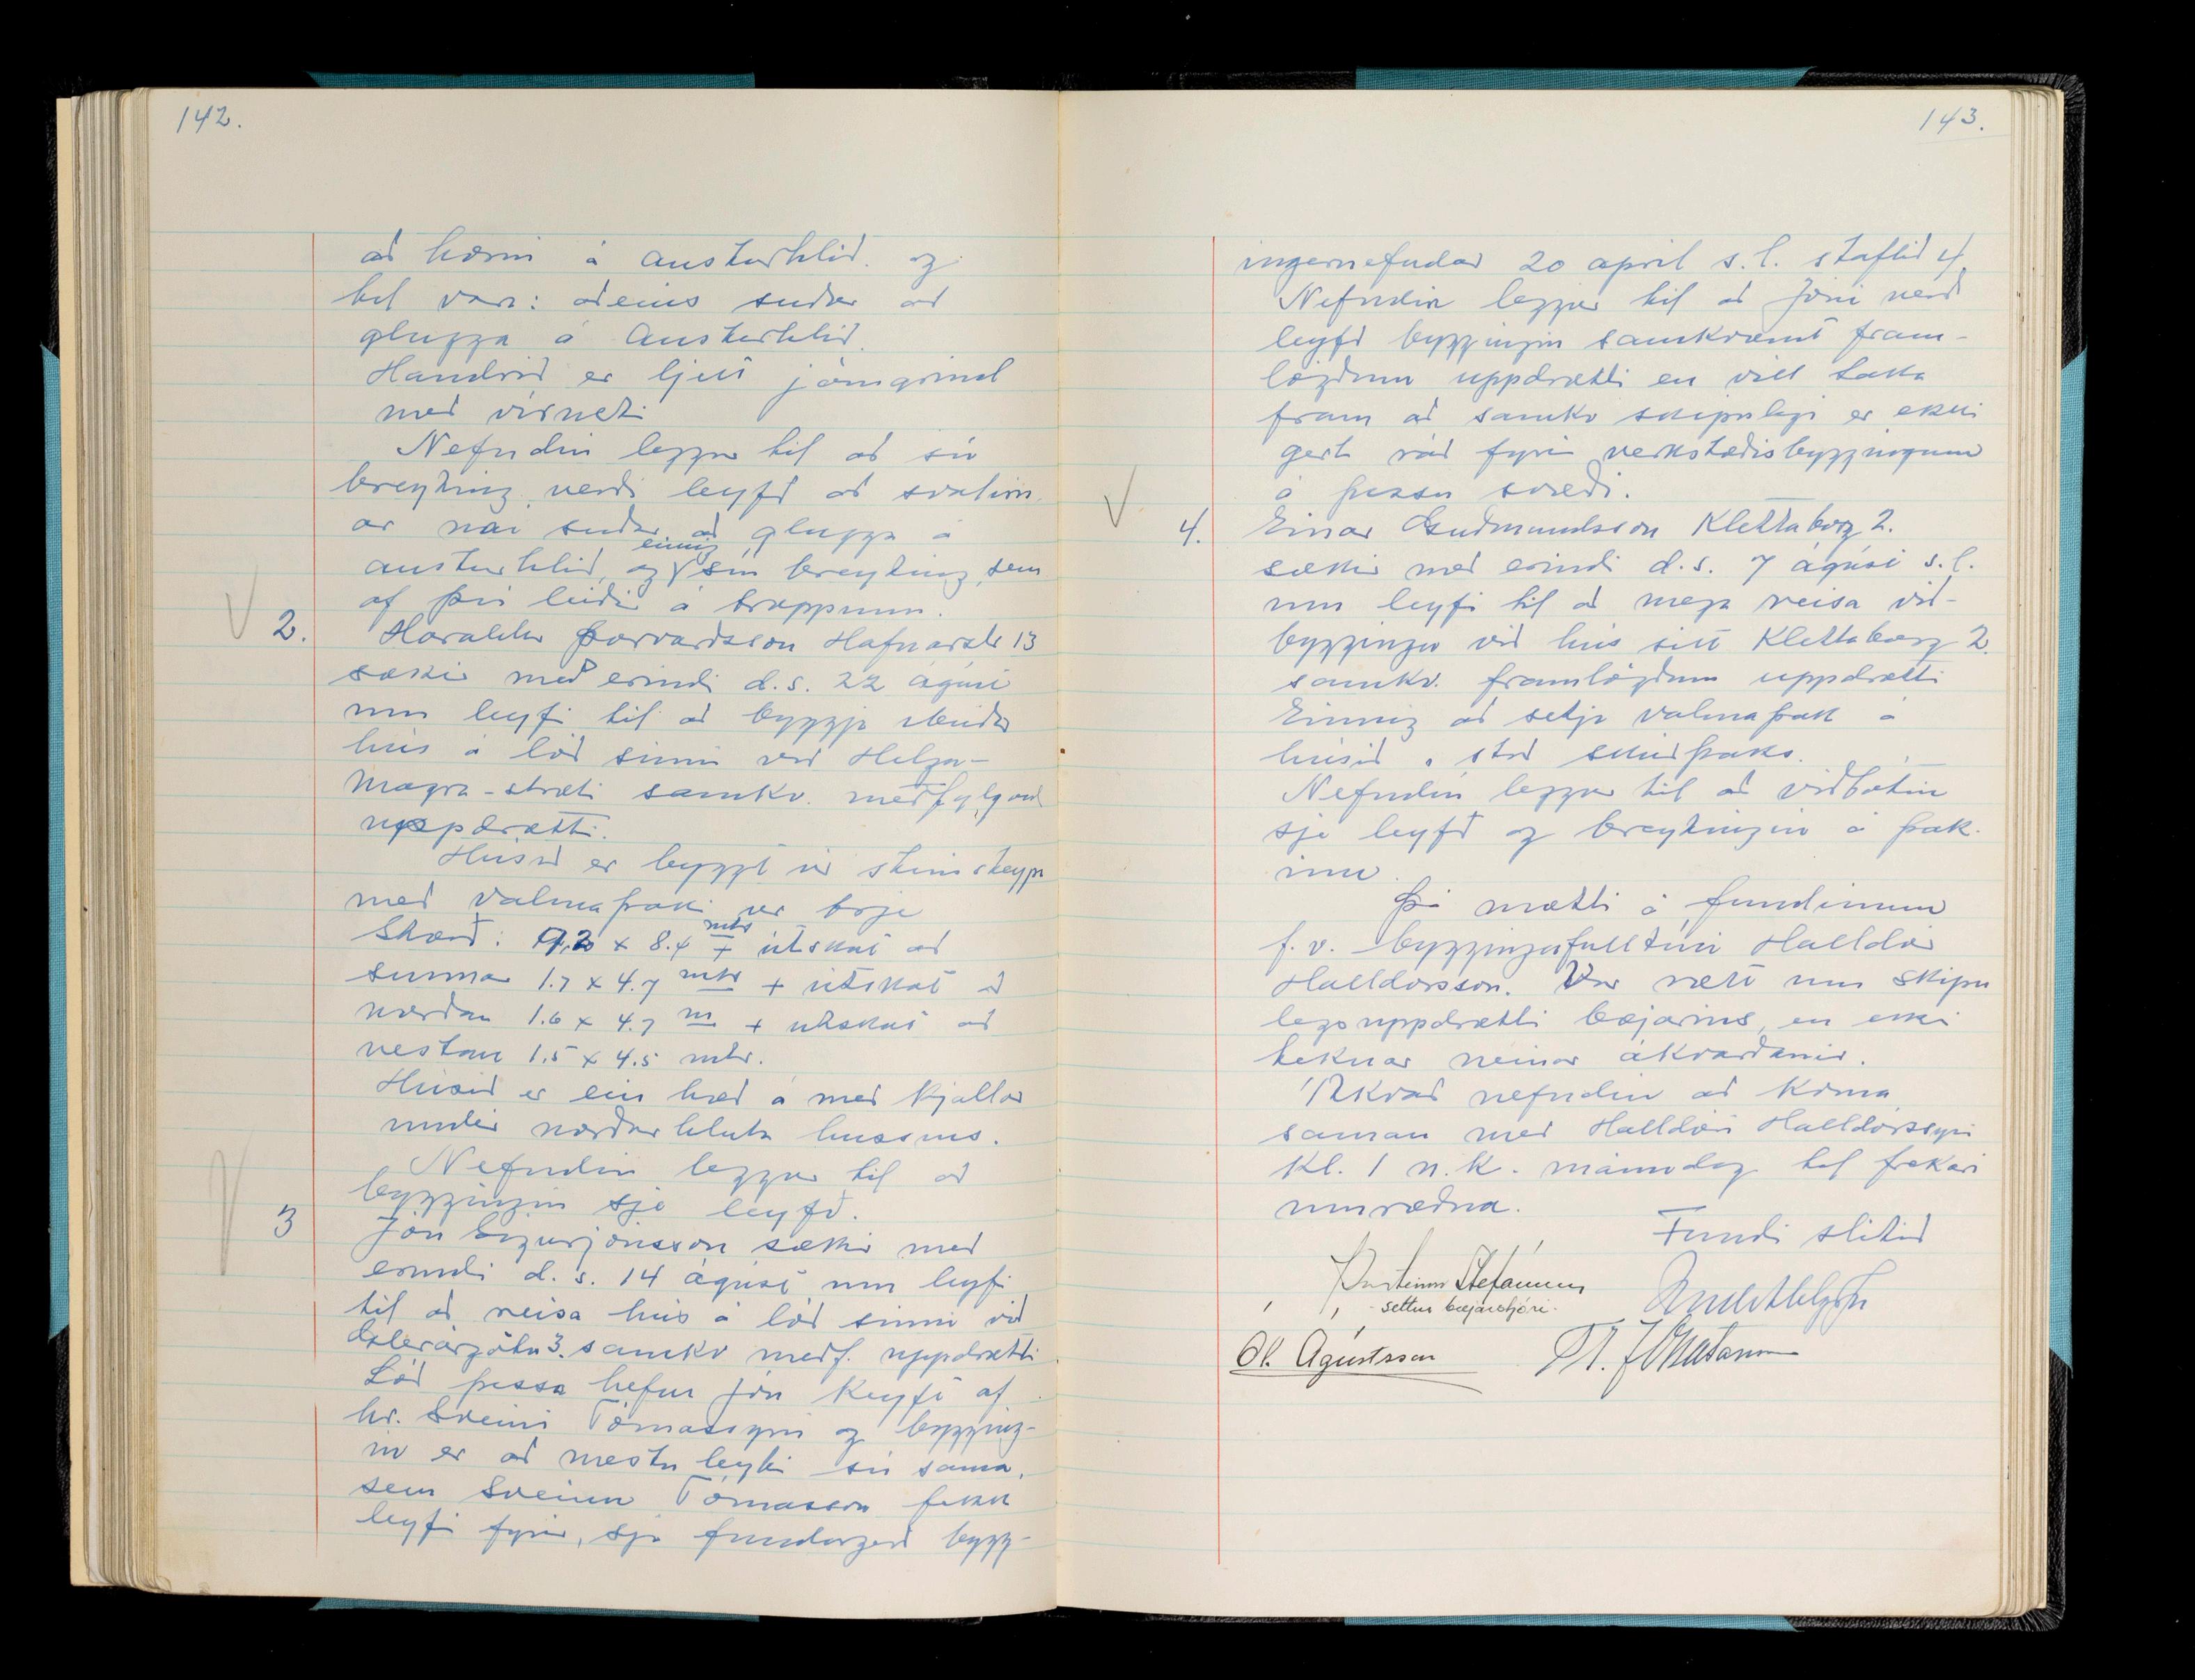 142.
að horni á austurhlið. og
til vara: aðeins suður að
glugga á Austurhlið.
Handrið er ljett járngrind
með vírneti
Nefndin leggur til að sú
breyting verði leyfð að svalirn-
ar nái suður að glugga á
austurhlið, og einnig sú breyting, sem
af því leiðir á tröppunum.
2. Haraldur Þorvarðsson Hafnarstr 13
sækir með erindi d.s. 22 ágúst
um leyfi til að byggja íbúðar
hús á lóð sinni við Helga-
magra-stræti samkv. meðfylgjand
uppdrætti.
Húsið er byggt úr steinsteypu
með valmaþaki úr torfi
Stærð: 9,20 x 8.4 mtr + útskot að
sunnan 1.7 x 4.7 mtr + útskot að
norðan 1.6 x 4.7 m + útskot að
vestan 1.5 x 4.5 mtr.
Húsið er ein hæð á með kjallar
undir norðurhluta hússins.
Nefndin leggur til að
byggingin sje leyfð.
3 Jón Sigurjónsson sækir með
erindi d.s. 14 ágúst um leyfi
til að reisa hús á lóð sinni við
Glerárgötu 3. samkv meðf. uppdrætti
Lóð þessa hefur Jón keyft af
hr. Sveini Tómassyni og bygging-
in er að mestu leyti sú sama,
sem Sveinn Tómasson fekk
leyfi fyrir, sjá fundargerð bygg-
143.
ingarnefndar 20 april s.l. staflið 4
Nefndin leggur til að Jóni verð
leyfð byggingin samkvæmt fram-
lögðum uppdrætti en vill taka
fram að samkv skipulagi er ekki
gert ráð fyrir verkstæðisbyggingum
á þessu svæði.
4. Einar Guðmundsson Klettaborg 2.
sækir með erindi d.s. 7 ágúst s.l.
um leyfi til að mega reisa við-
byggingu við hús sitt Klettaborg 2.
samkv. framlögðum uppdrætti
Einnig að setja valmaþak á
húsið í stað skúrþaks.
Nefndin leggur til að viðbótin
sje leyfð og breytingin á þak-
inu.
Þá mætti á fundinum
f.v. byggingafulltrúi Halldór
Halldórsson. Var rætt um skipu
lagsuppdrætti bæjarins, en ekki
teknar neinar ákvarðanir.
Ákvað nefndin að koma
saman með Halldóri Halldórssyni
kl. 1 n.k. mánudag til frekari
umræðna.
Fundi slitið
Þorsteinn Stefánsson
settur bæjarstjóri.
Ól. Ágústsson